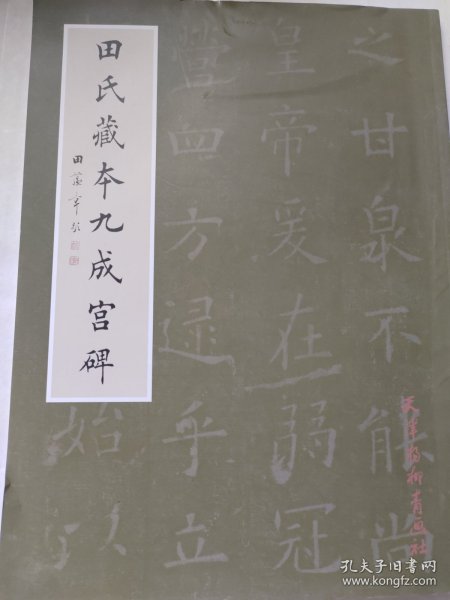 田氏藏本九成宫碑
田蕴章題
之甘泉不能尚
皇帝爰在弱冠
營四方逮乎立
始以
天津杨柳青画社
孔夫子旧书网
www.kongfz.com